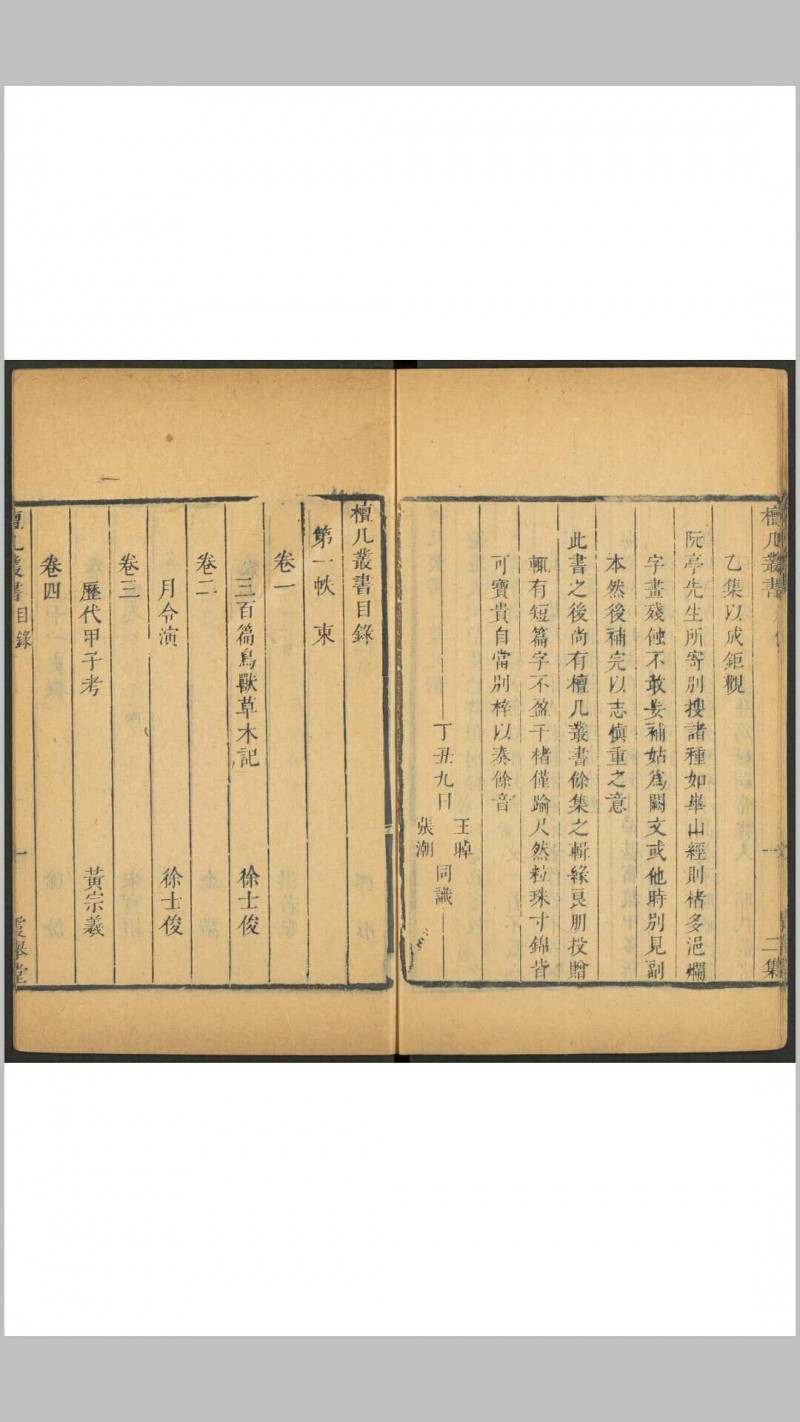 檀几叢書
二集
乙集以成鉅觀
阮亭先生所寄別搜諸種如峚山經則楮多浥爛
字畫殘蝕不敢妄補姑爲闕文或他時別見副
本然後補完以志慎重之意
此書之後尚有檀几叢書餘集之輯緣良朋投贈
輒有短篇字不盈千楮僅踰尺然粒珠寸錦皆
可寶貴自當別梓以奏餘音
丁丑九日
王晫
張潮
同識
檀几叢書目錄
第一帙 東
卷一
三百篇鳥獸草木記 徐士俊
卷二
月令演 徐士俊
卷三
歷代甲子考 黃宗羲
卷四
檀几叢書 目錄 一 霞舉堂